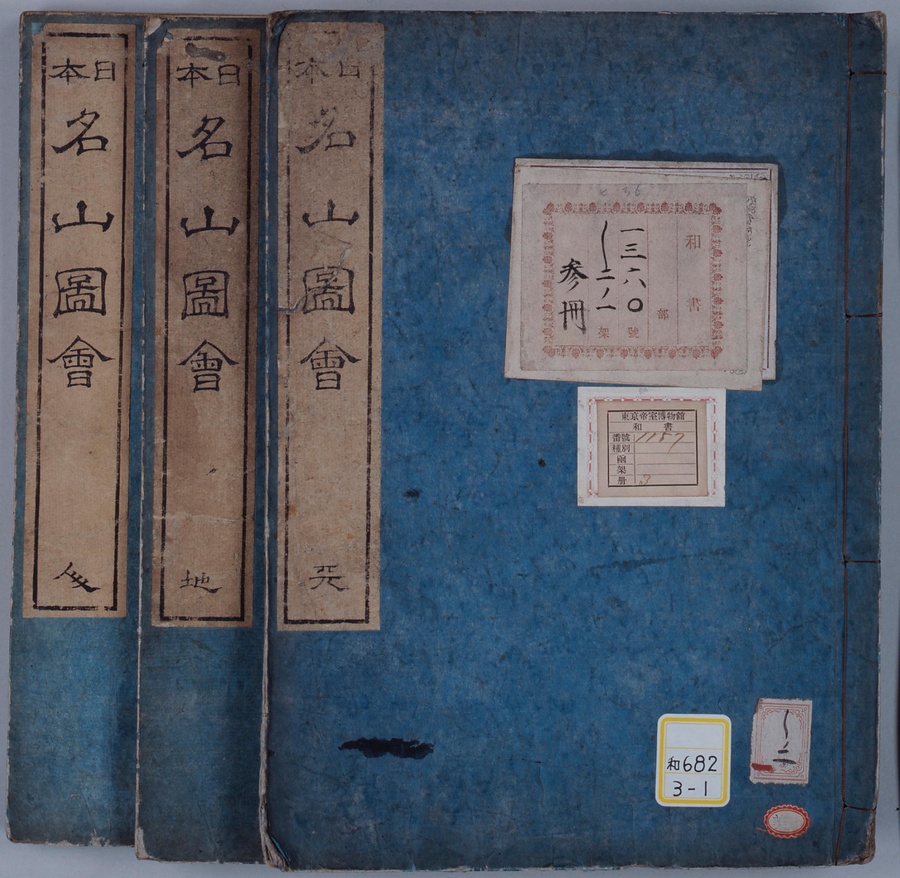 日本
名山圖會
天
日本
名山圖會
地
日本
名山圖會
人
和書
部
一三六〇號
し二ノ一架
参冊
東京帝室博物館
和書
番號 1157
種別
凾
架
册 3
和682
3-1
し二